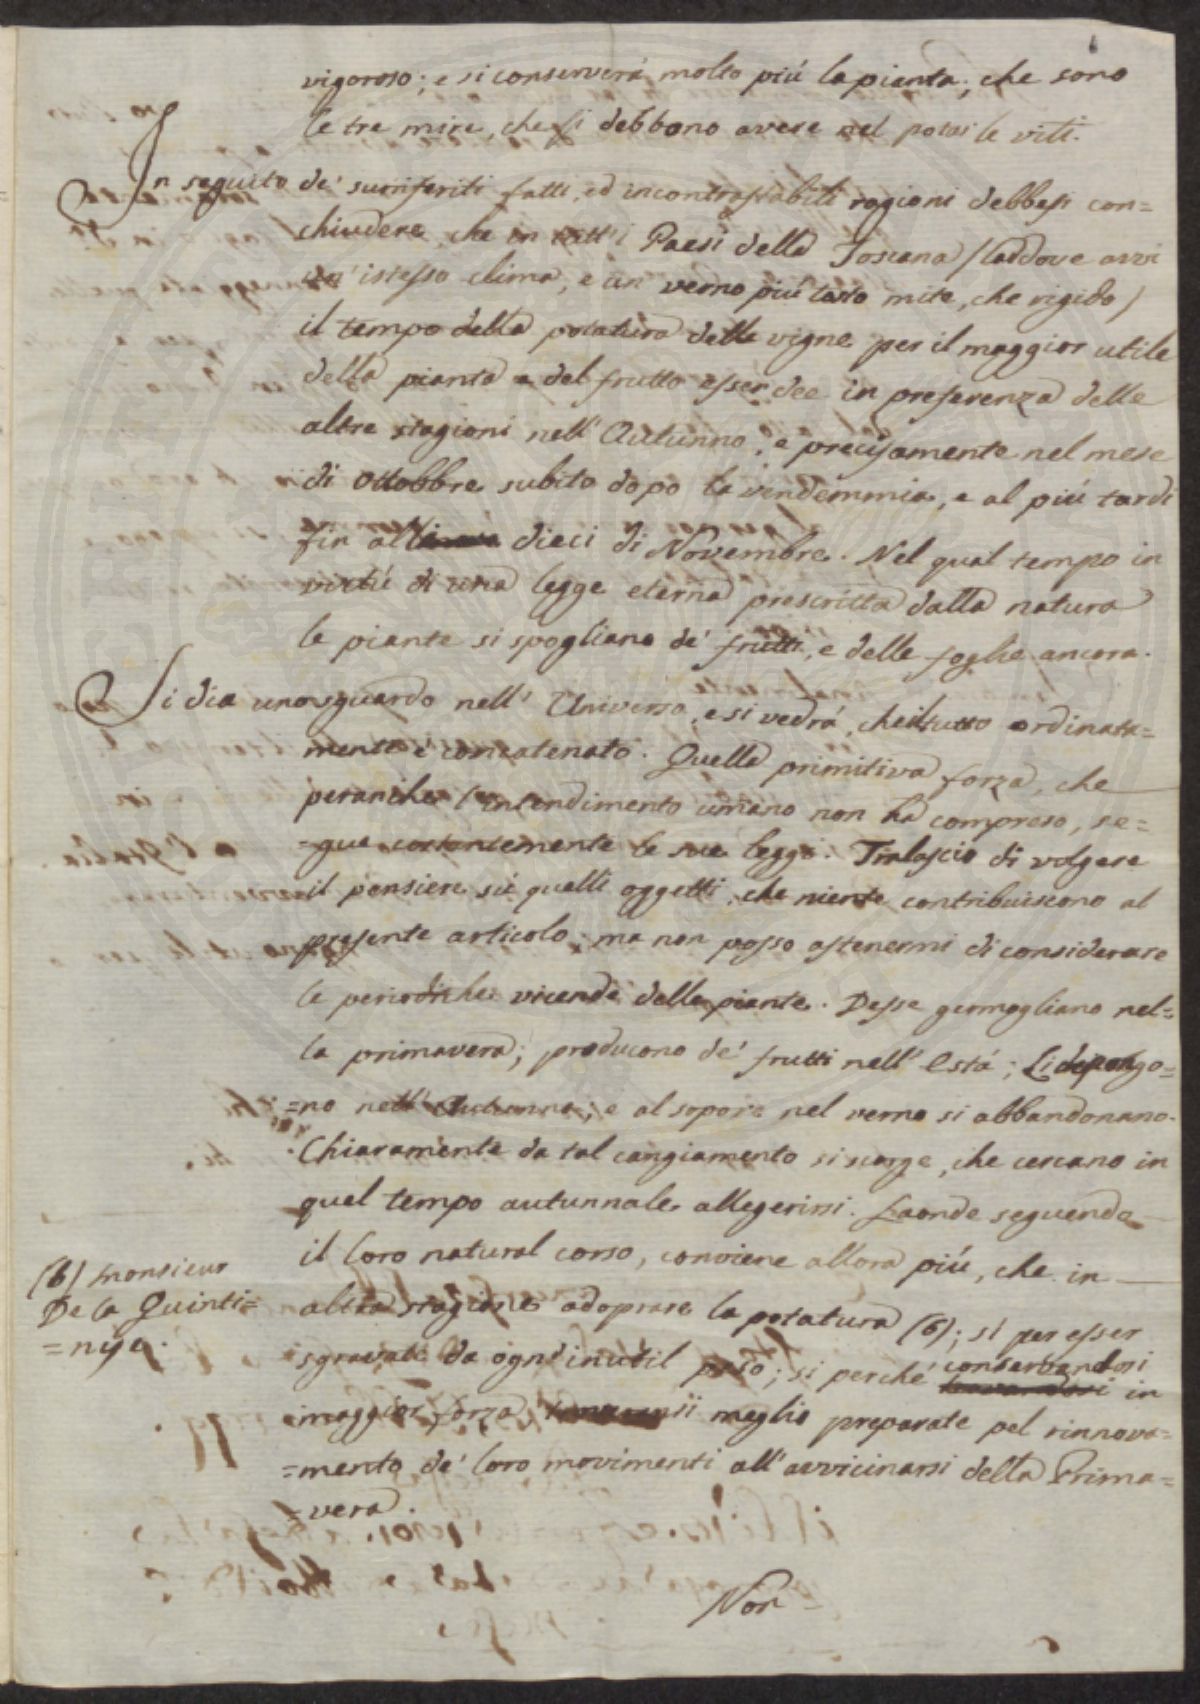 vigoroso; e si conserverà molto piú la pianta; che sono
le tre mire, che si debbono avere nel potar le viti.
In seguito de' surriferiti fatti, ed incontrastabili ragioni debbesi con=
chiudere, che in tutt'i Paesi della Toscana /laddove avvi
un' istesso clima, e un verno piú tosto mite, che rigido/
il tempo della potatura delle vigne per il maggior utile
della pianta e del frutto esser dee in preferenza delle
altre stagioni nell' Autunno, e precisamente nel mese
di Ottobbre subito dopo la vindemmia, e al piú tardi
fin alli dieci di Novembre. Nel qual tempo in
virtú di una legge eterna prescritta dalla natura
le piante si spogliano de' frutti, e delle foglie ancora.
Si dia uno sguardo nell' Universo, e si vedrá, che il tutto ordinata=
mente é concatenato. Quella primitiva forza, che
peranche l'intendimento umano non ha compreso, se=
=gue costantemente le sue leggi. Tralascio di volgere
il pensiere sú quelli oggetti, che niente contribuiscono al
presente articolo; ma non posso astenermi di considerare
le periodiche vicende delle piante. Desse germogliano nel=
la primavera; producono de' frutti nell' Está; Li depongo=
=no nell' Autunno; e al sopore nel verno si abbandonano.
Chiaramente da tal cangiamento si scorge, che cercano in
quel tempo autunnale allegerirsi. Laonde seguendo
il loro natural corso, conviene allora piú, che in
altra stagione adoprare la potatura (6); si per esser
sgravate da ogni inutil peso; si perché conservandosi in
maggior forza meglio preparate pel rinnova=
=mento de' loro movimenti all' avvicinarsi della Prima=
=vera.
(6) Monsieur
De la Quinti=
=nye.
Non